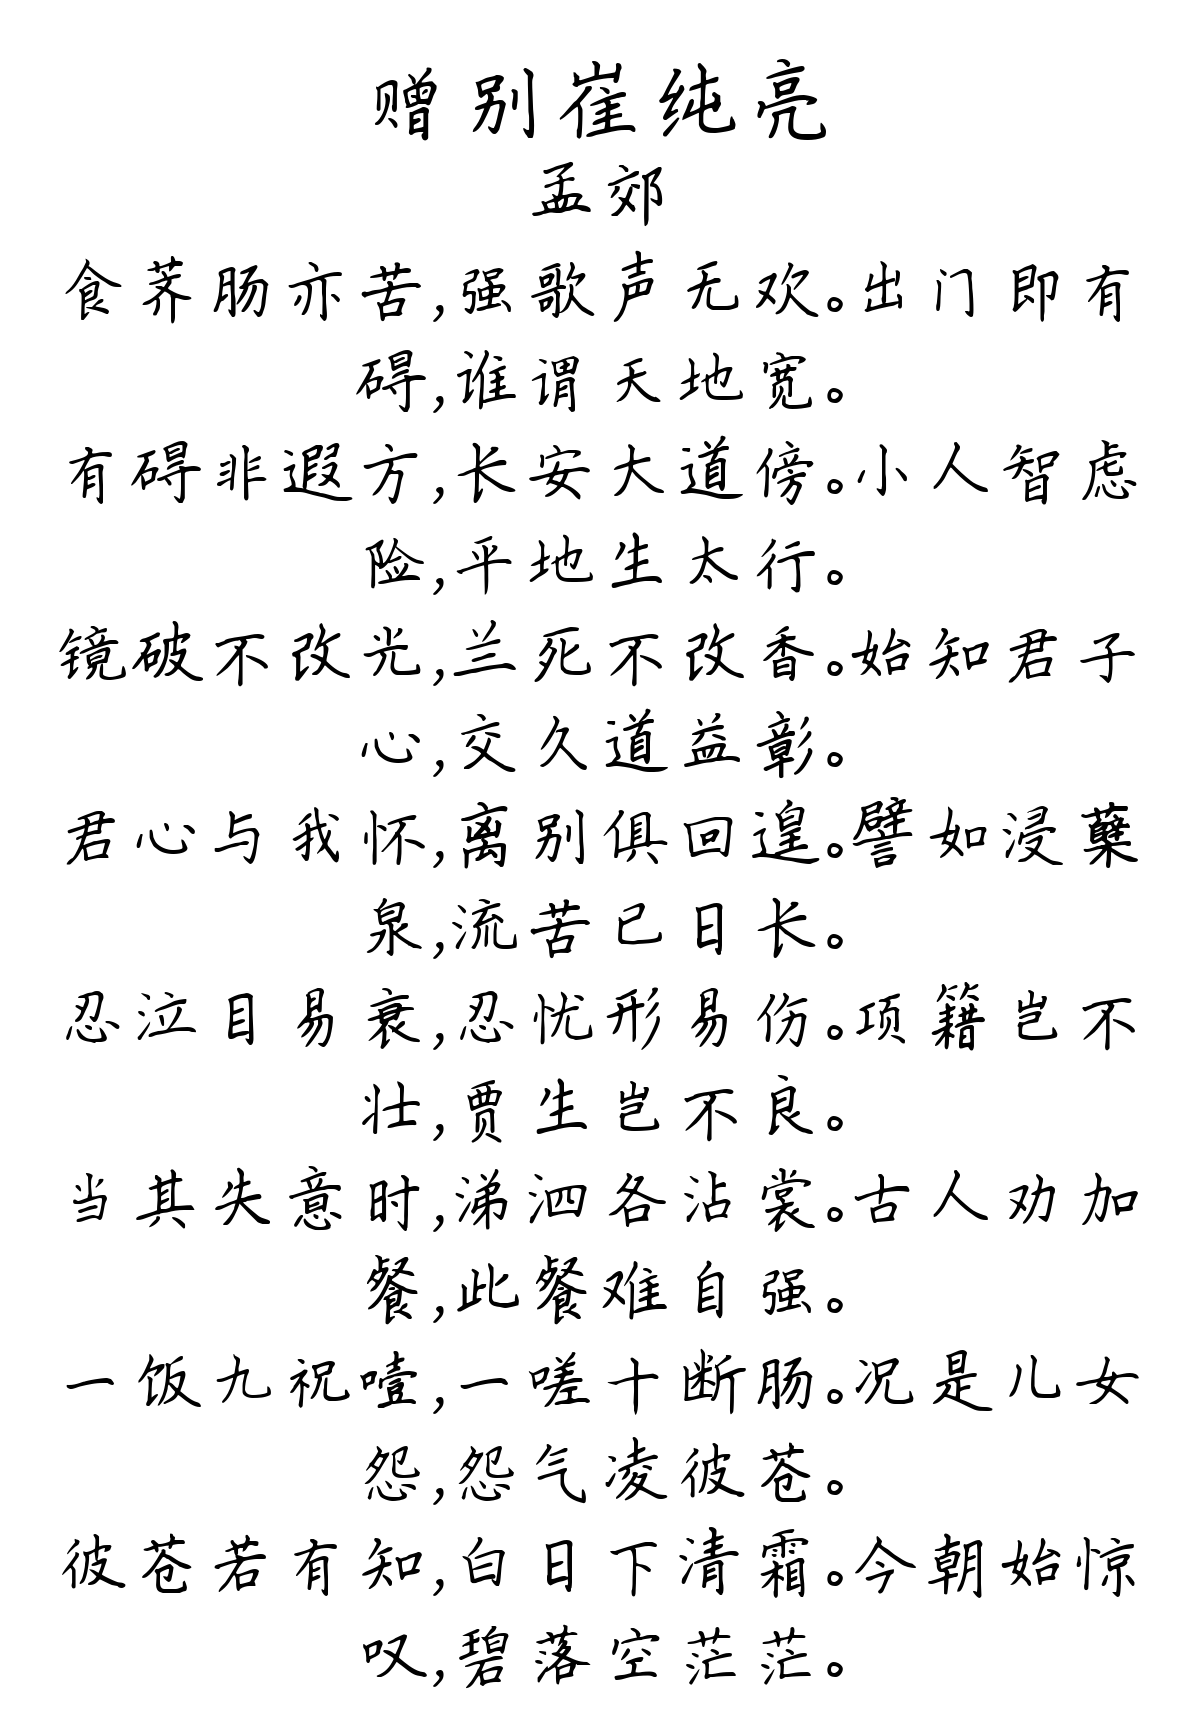 赠别崔纯亮
孟郊
食荠肠亦苦,强歌声无欢。出门即有
碍,谁谓天地宽。
有碍非遐方,长安大道傍。小人智虑
险,平地生太行。
镜破不改光,兰死不改香。始知君子
心,交久道益彰。
君心与我怀,离别俱回遑。譬如浸蘖
泉,流苦已日长。
忍泣目易衰,忍忧形易伤。项籍岂不
壮,贾生岂不良。
当其失意时,涕泗各沾裳。古人劝加
餐,此餐难自强。
一饭九祝噎,一嗟十断肠。况是儿女
怨,怨气凌彼苍。
彼苍若有知,白日下清霜。今朝始惊
叹,碧落空茫茫。